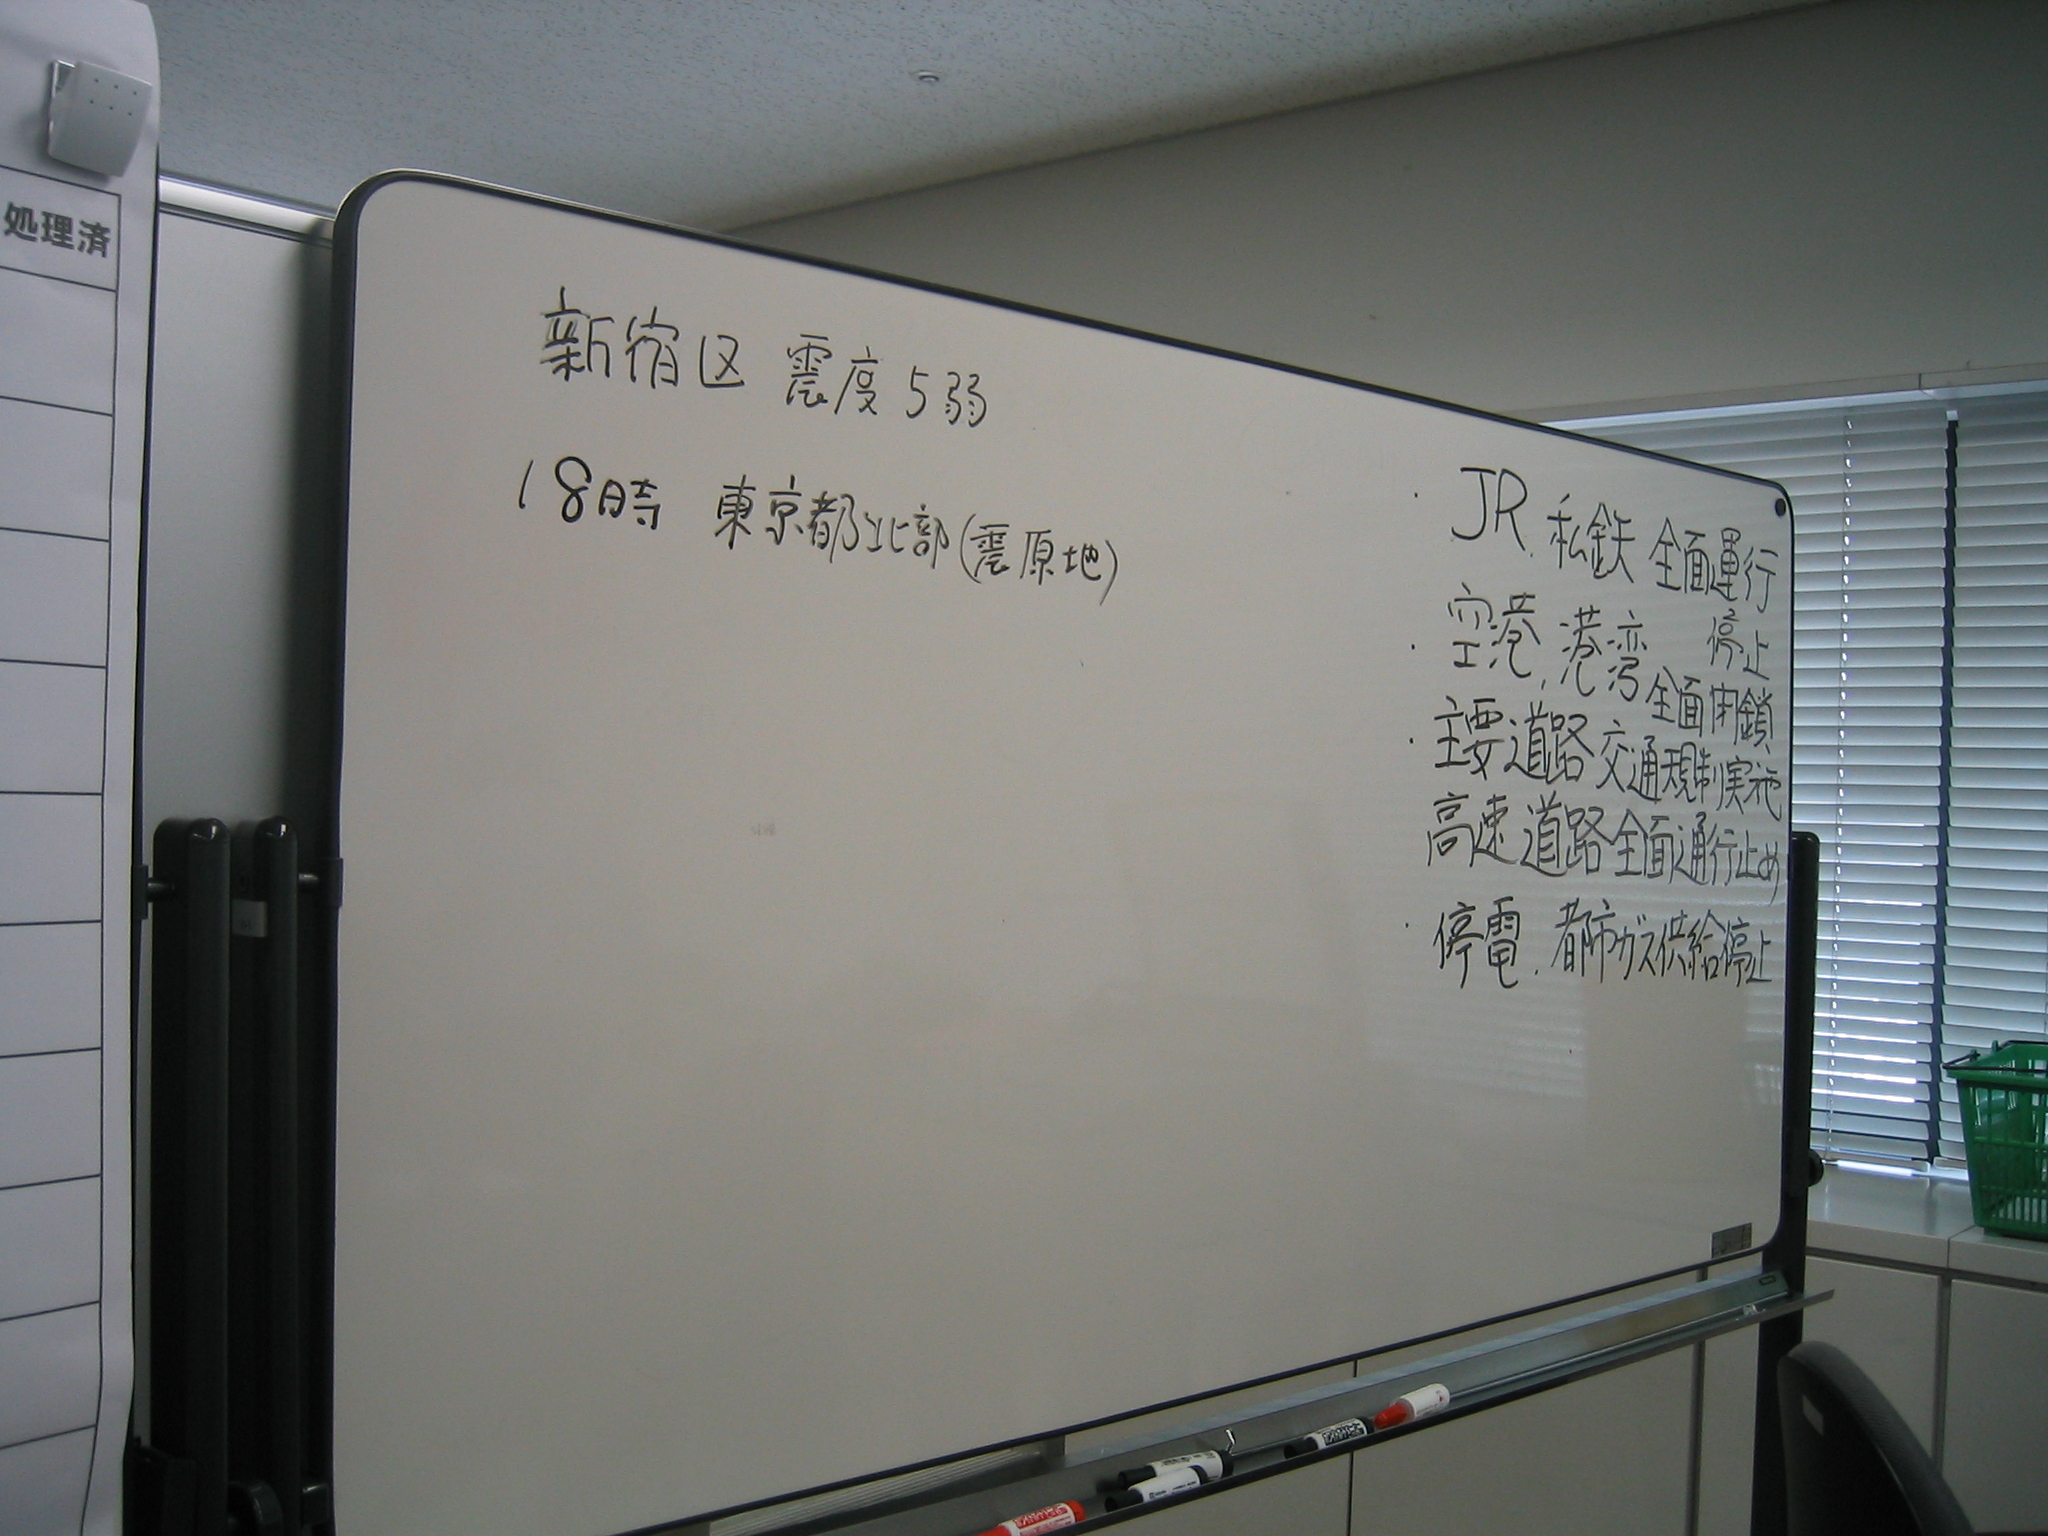 処理済
新宿区 震度5弱
18時 東京都北部(震原地)
・JR、私鉄 全面運行
停止
・空港、港湾 全面閉鎖
・主要道路 交通規制実施
高速道路全面通行止め
・停電、都市ガス供給停止